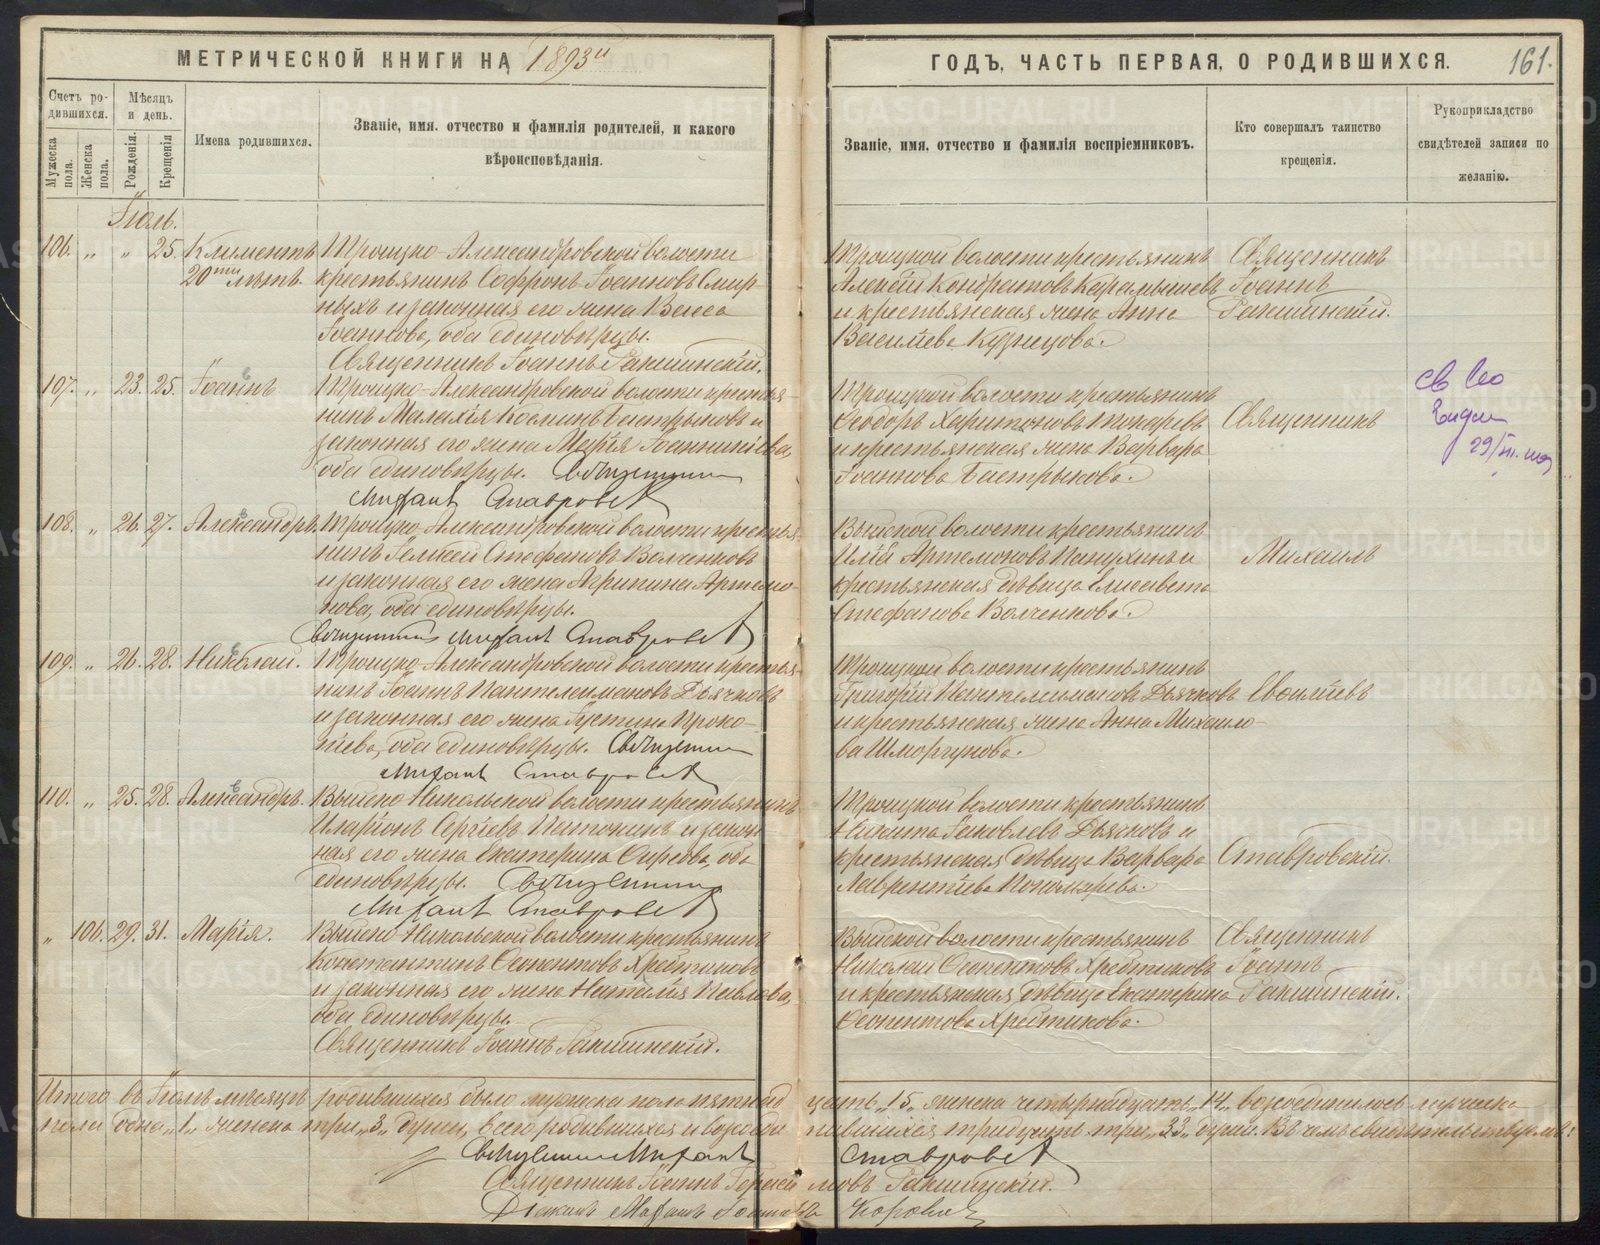 МЕТРИЧЕСКОЙ КНИГИ НА 1893й
ГОДЪ, ЧАСТЬ ПЕРВАЯ, О РОДИВШИХСЯ.
161.
Счетъ ро-
дившихся.
Мѣсяцъ
и день.
Мужеска
пола.
Женска
пола.
Рожденія.
Крещенія
Имена родившихся.
Званіе, имя, отчество и фамилія родителей, и какого
вѣроисповѣданія.
Званіе, имя, отчество и фамилія воспріемниковъ.
Кто совершалъ таинство
крещенія.
Рукоприкладство
свидѣтелей записи по
желанію.
Іюль.
106. „ „ 25. Климентъ
20ти лѣтъ.
Троицко-Александровской волости
крестьянинъ Софронъ Іоанновъ Смир-
ныхъ и законная его жена Васса
Іоаннова, оба единовѣрцы.
Священникъ Іоаннъ Ракшинскій.
Троицкой волости крестьянинъ
Алексій Кондратовъ Карамышевъ
и крестьянская жена Анна
Васильева Кузнецова.
Священникъ
Іоаннъ
Ракшинскій.
107. „ 23. 25. Іоаннъ
Троицко-Александровской волости крестья-
нинъ Малахія Косминъ Бастрыковъ и
законная его жена Марія Іоанникіева,
оба единовѣрцы. Священникъ
Михаилъ Ставровскій
Троицкой волости крестьянинъ
Ѳеодоръ Харитоновъ Токаревъ
и крестьянская жена Варвара
Іоаннова Бастрыкова.
Священникъ
108. „ 26. 27. Александръ.
Троицко-Александровской волости крестья-
нинъ Елисей Стефановъ Волченковъ
и законная его жена Агрипина Артемо-
нова, оба единовѣрцы.
Священникъ Михаилъ Ставровскій
Выйской волости крестьянинъ
Илія Артемоновъ Попугинъ и
крестьянская дѣвица Елисавета
Стефанова Волченкова.
Михаилъ
109. „ 26. 28. Николай.
Троицко-Александровской волости крестья-
нинъ Іоаннъ Пантелеимоновъ Дьячковъ
и законная его жена Іустина Проко-
піева, оба единовѣрцы. Священникъ
Михаилъ Ставровскій
Троицкой волости крестьянинъ
Григорій Пантелеимоновъ Дьячковъ
и крестьянская жена Анна Михаило-
ва Шморгунова.
Василіевъ
110. „ 25. 28. Александръ.
Выйско-Никольской волости крестьянинъ
Иларіонъ Сергіевъ Паточинъ и закон-
ная его жена Екатерина Сиреова, оба
единовѣрцы. Священникъ
Михаилъ Ставровскій
Троицкой волости крестьянинъ
Никита Іаковлевъ Дьячковъ и
крестьянская дѣвица Варвара
Лаврентіева Пономарева.
Ставровскій.
„ 106. 29. 31. Марія.
Выйско-Никольской волости крестьянинъ
Константинъ Ѳеопентовъ Хрестиковъ
и законная его жена Наталія Павлова,
оба единовѣрцы.
Священникъ Іоаннъ Ракшинскій.
Выйской волости крестьянинъ
Николай Ѳеопентовъ Хрестиковъ
и крестьянская дѣвица Екатерина
Ѳеопентова Хрестикова.
Священникъ
Іоаннъ
Ракшинскій.
Итого въ Іюлѣ мѣсяцѣ родившихся было мужеска пола пятнадцать „15„ женска четырнадцать „14„ возсоединилось мужеска
пола одна „1„ женска три „3„ души, всего родившихся и возсоединившихся тридцать три „33„ души. Въ чемъ свидѣтельствуемъ:
Священникъ Михаилъ Ставровскій
Священникъ Іоаннъ Ракшинскій.
METRIKI.GASO-URAL.RU